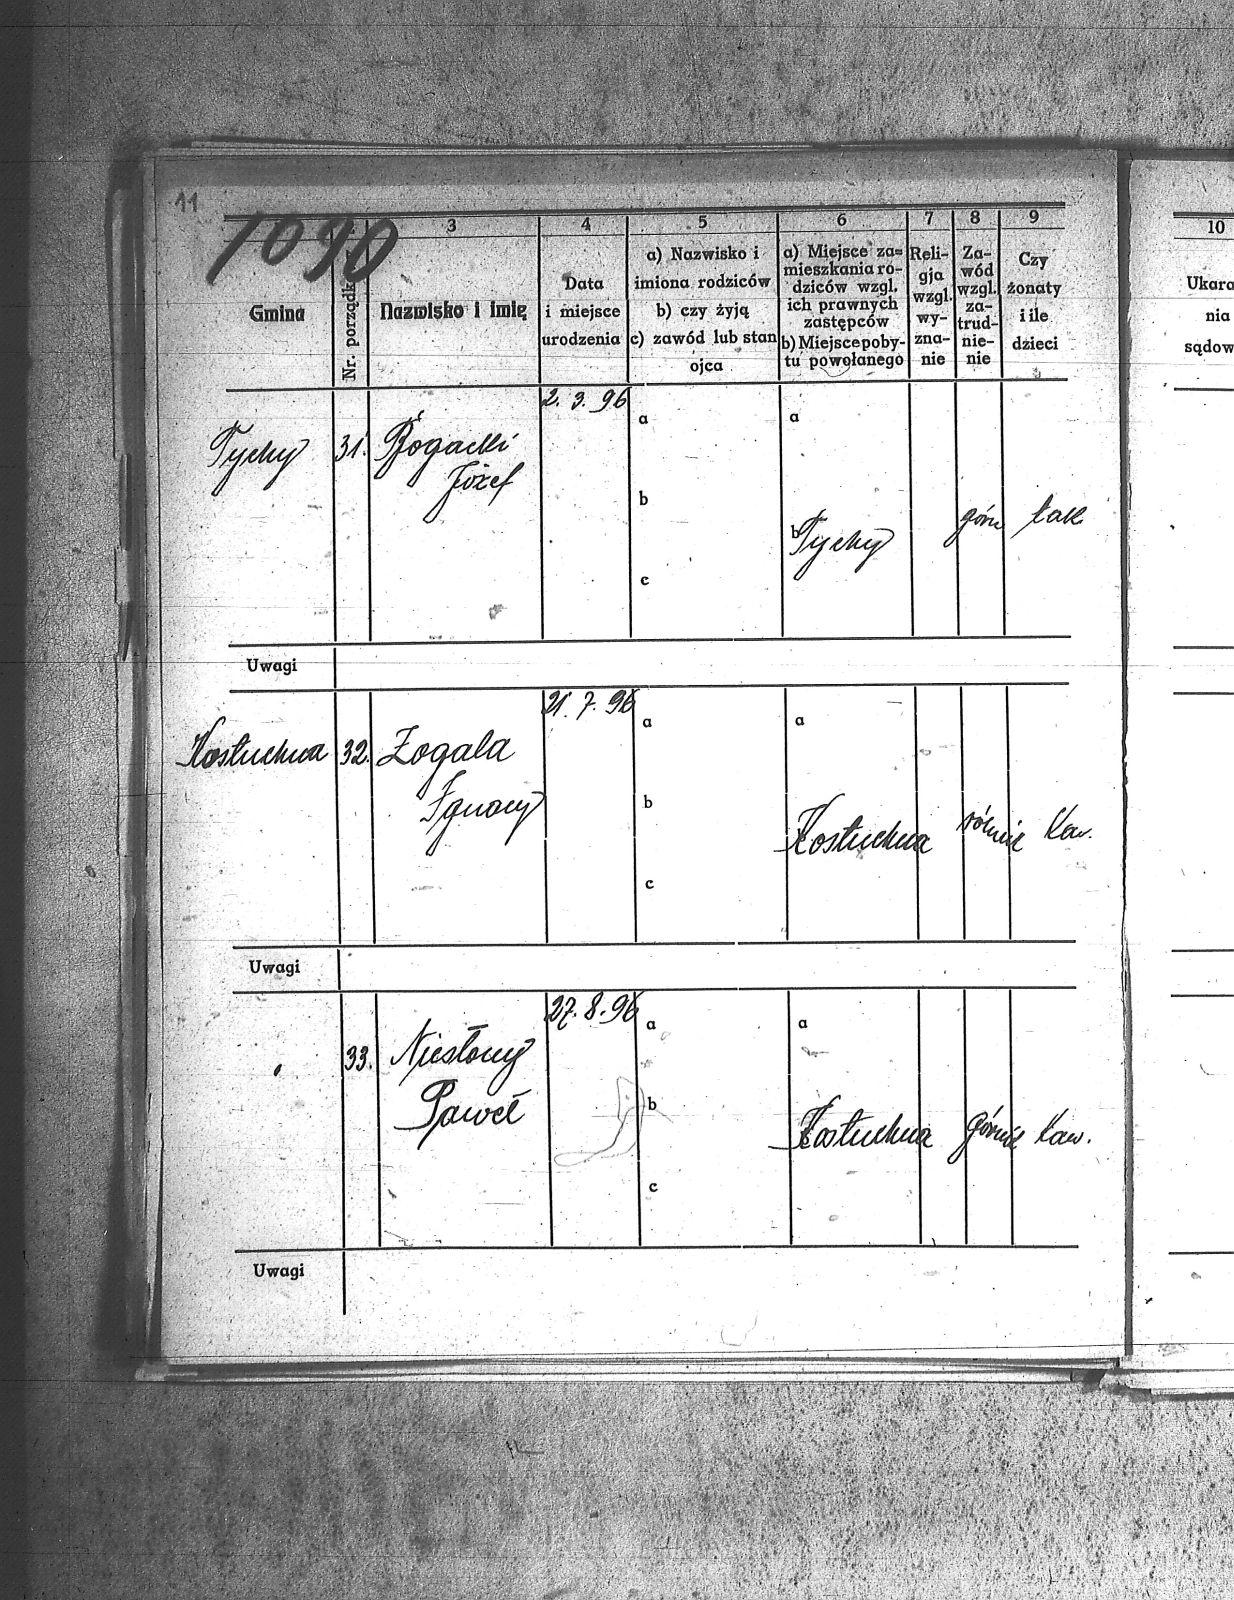 11
1090
3
4
5
6
7
8
9
10
Gmina
Nr. porządk.
Nazwisko i imię
Data
i miejsce
urodzenia
a) Nazwisko i
imiona rodziców
b) czy żyją
c) zawód lub stan
ojca
a) Miejsce za-
mieszkania ro-
dziców wzgl.
ich prawnych
zastępców
b) Miejsce poby-
tu powołanego
Reli-
gja
wzgl.
wy-
zna-
nie
Za-
wód
wzgl.
za-
trud-
nie-
nie
Czy
żonaty
i ile
dzieci
Ukara
nia
sądow
Tychy
31.
Bogacki
Józef
2. 3. 96
a
b
c
a
b
Tychy
górn
tak
Uwagi
Kostuchna
32.
Zogala
Ignacy
21. 7. 96
a
b
c
a
Kostuchna
rólnik
Kaw.
Uwagi
33.
Niesłony
Paweł
27. 8. 96
a
b
c
a
Kostuchna
górnik
Kaw.
Uwagi